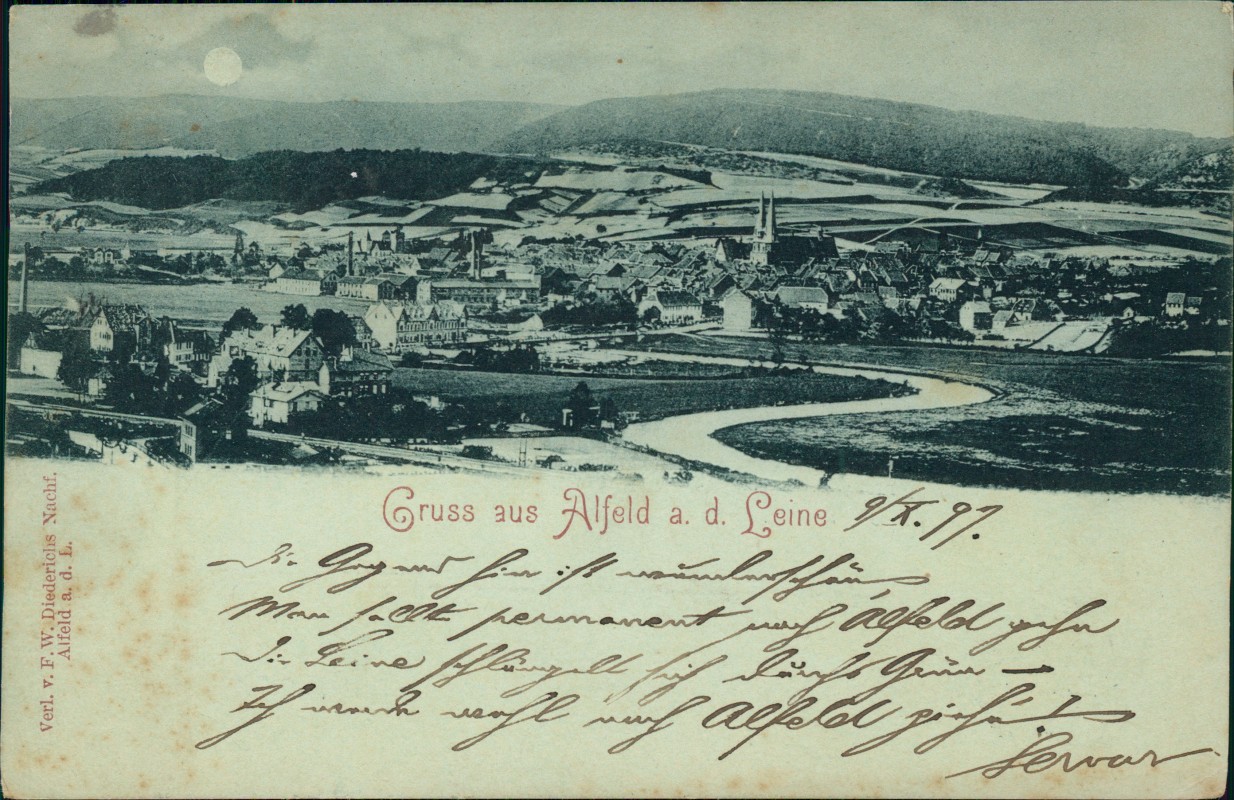 Gruss aus Alfeld a. d. Leine 9/X. 97.
Die Gegend hier ist wunderschön
Man sollte permanent nach Alfeld gehn
Die Leine schlängelt sich durchs Grün –
Ich werde wohl nach Alfeld ziehn!
Verl. v. F. W. Diederichs Nachf.
Alfeld a. d. L.